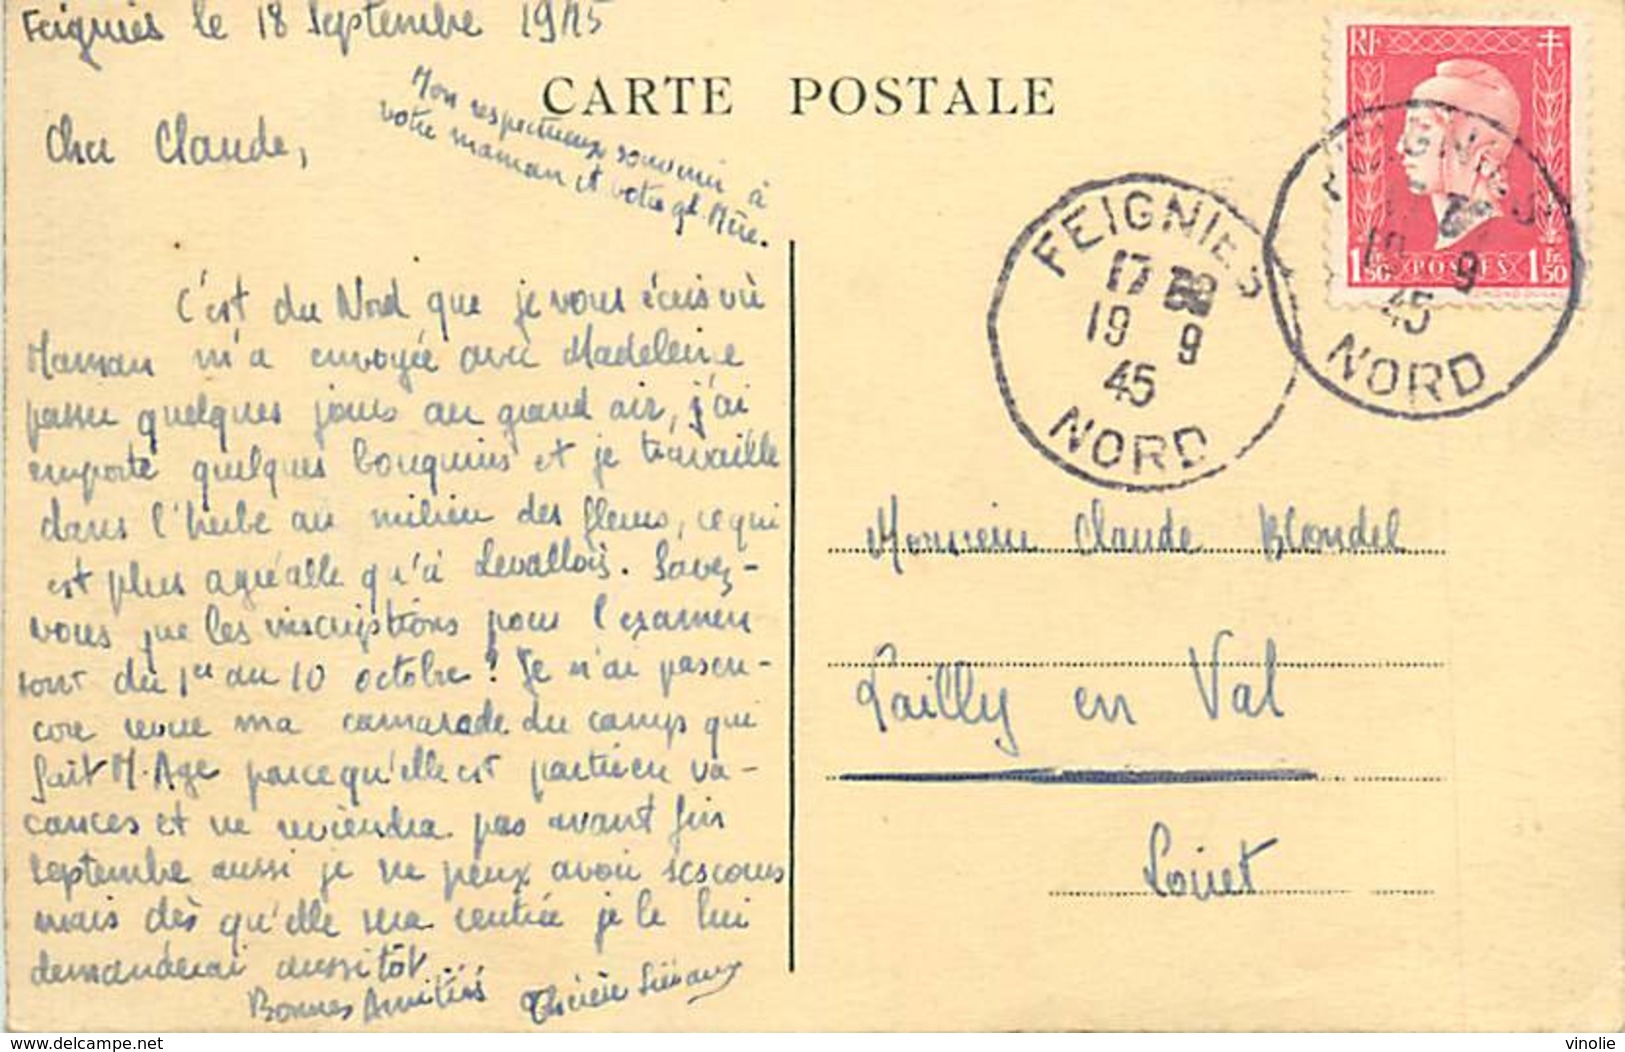 Feignies le 18 Septembre 1945
CARTE POSTALE
Mon respectueux souvenir à
votre maman et votre gd. Mère.
Cher Claude,
C'est du Nord que je vous écris où
Maman m'a envoyée avec Madeleine
passer quelques jours au grand air, j'ai
emporté quelques bouquins et je travaille
dans l'herbe au milieu des fleurs, ce qui
est plus agréable qu'à Levallois. Savez-
vous que les inscriptions pour l'examen
sont du 1er au 10 octobre? Je n'ai pas en-
core revue ma camarade du camp qui
fait M. Age parce qu'elle est partie en va-
cances et ne reviendra pas avant fin
septembre aussi je ne peux avoir ses cours
mais dès qu'elle sera rentrée je le lui
demanderai aussitôt.
Bonnes Amitiés Thérèse
RF
1 Fr. 50 POSTES 1 Fr. 50
FEIGNIES
17 30
19 9
45
NORD
FEIGNIES
19 9
45
NORD
Monsieur Claude Blondel
Lailly en Val
Loiret
https://www.delcampe.net/
vinolie